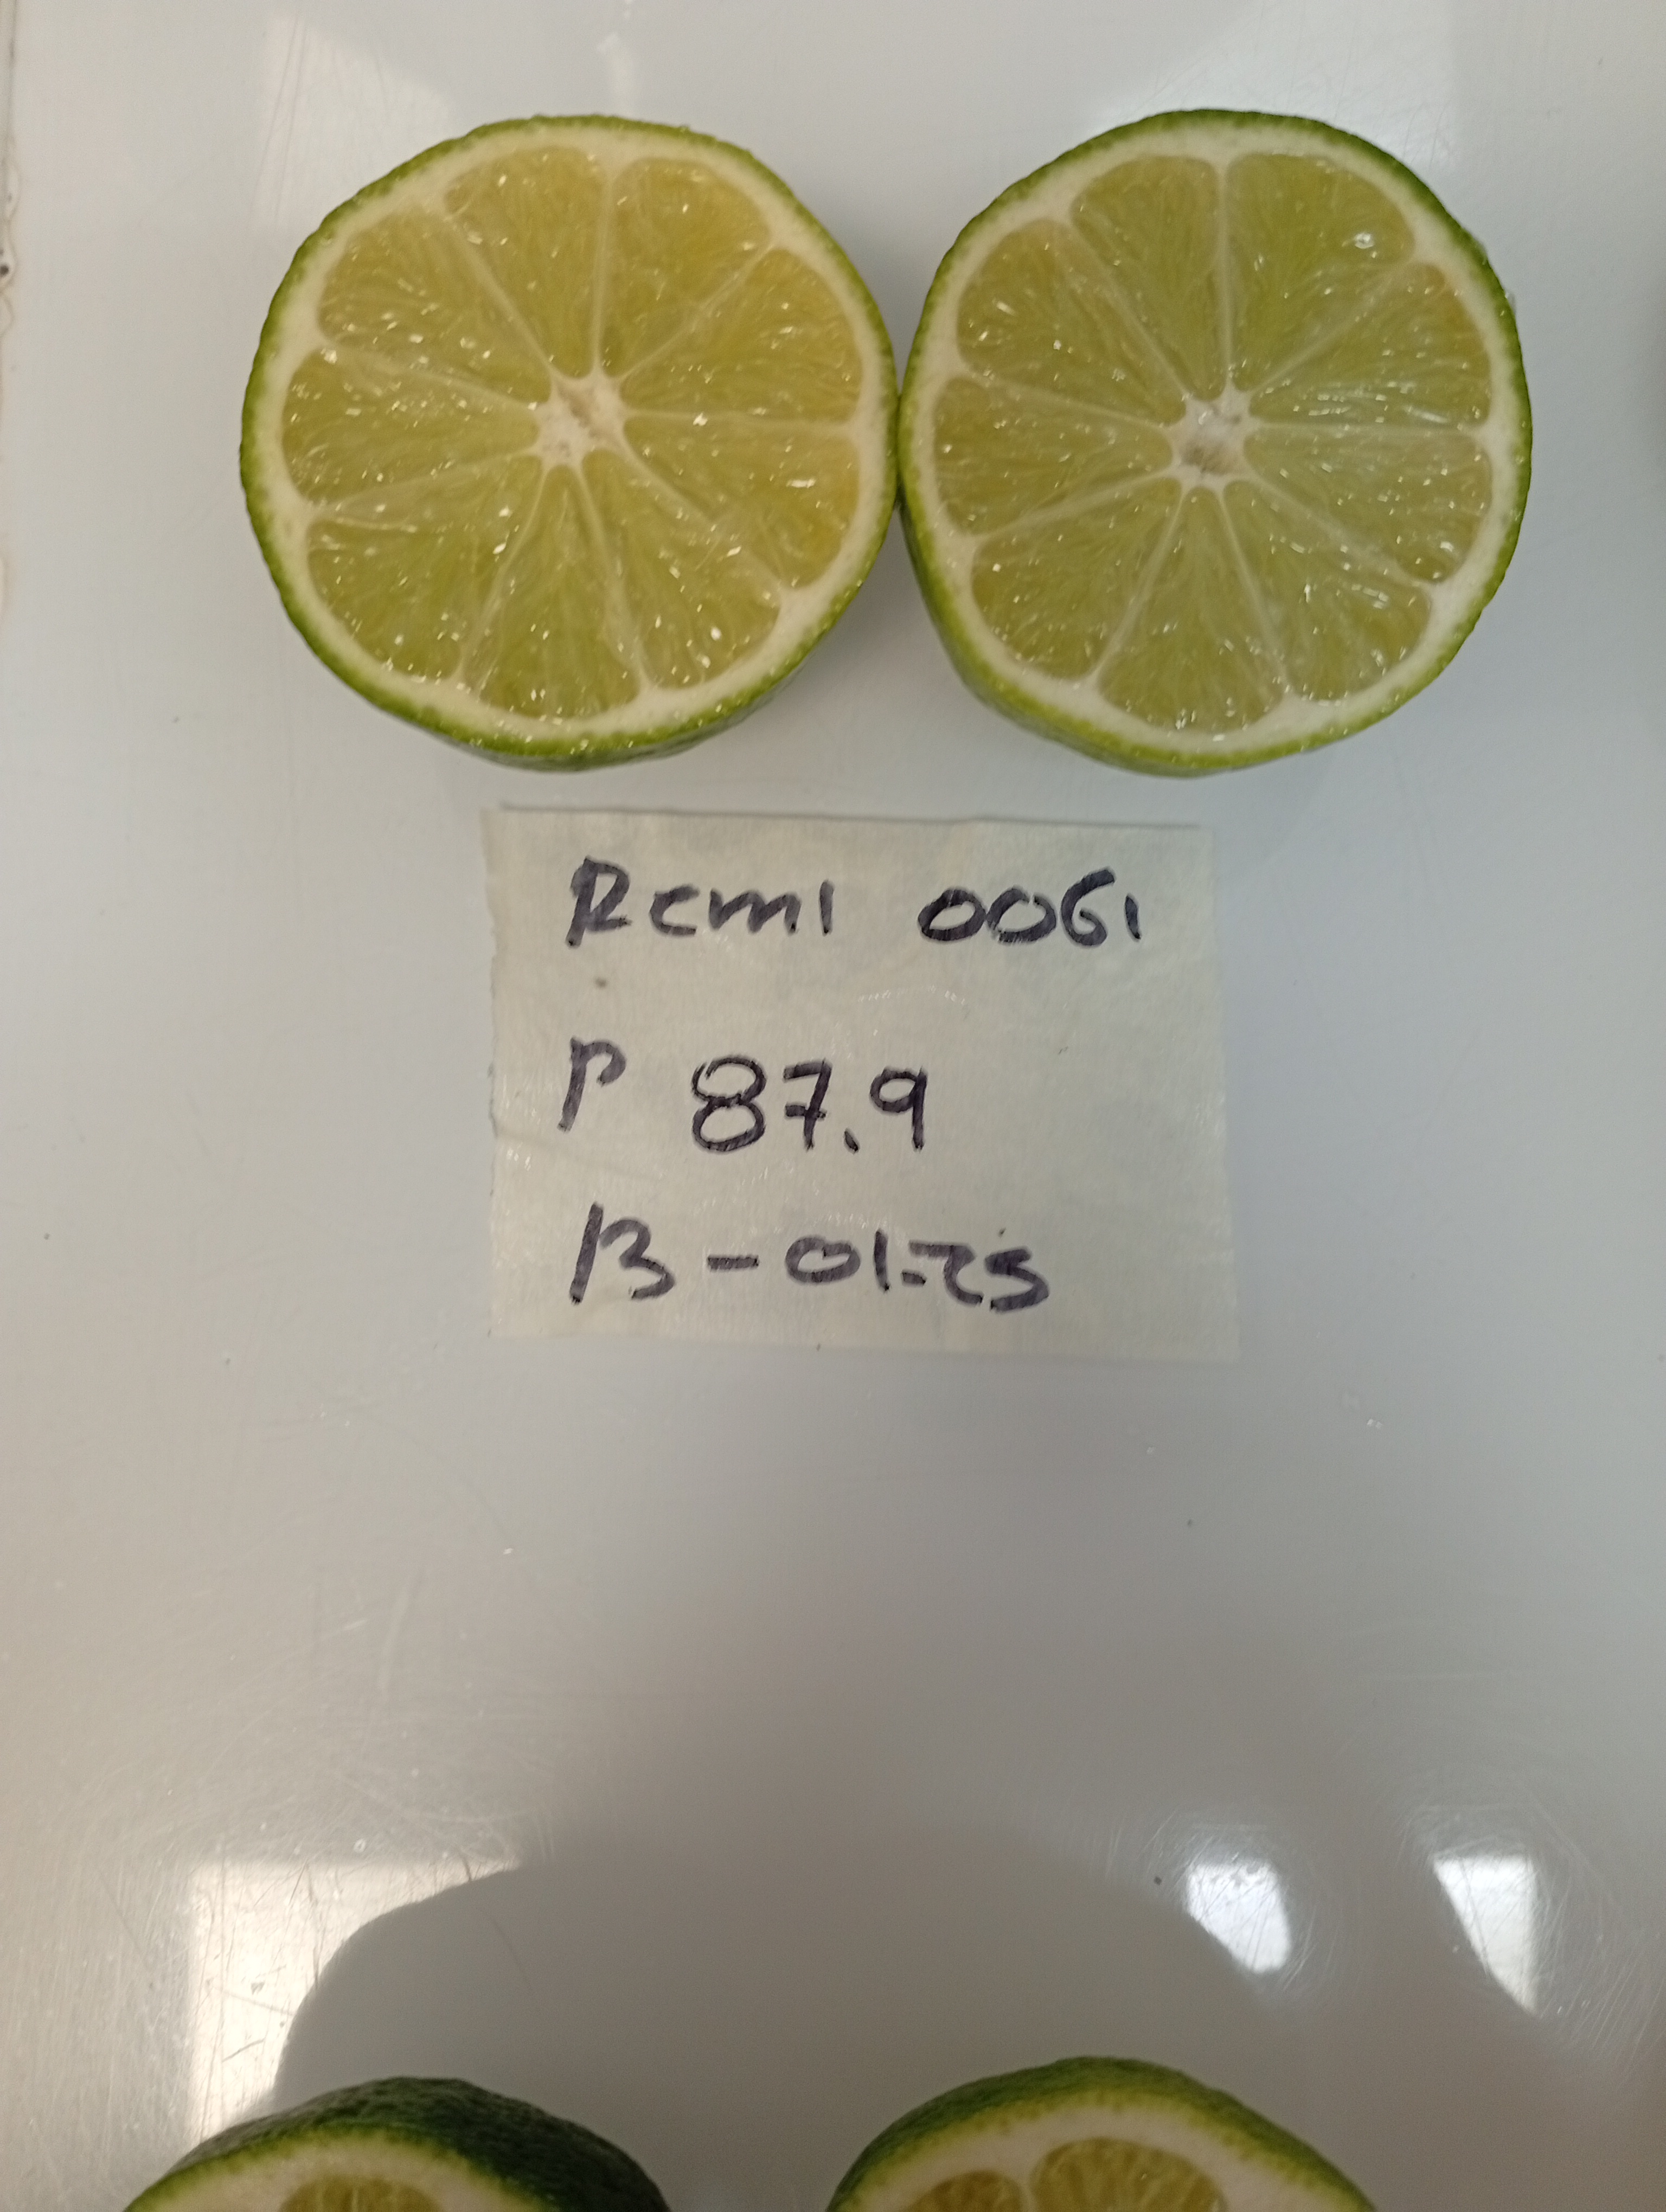 Rcml 0061
P 87.9
13-01-25